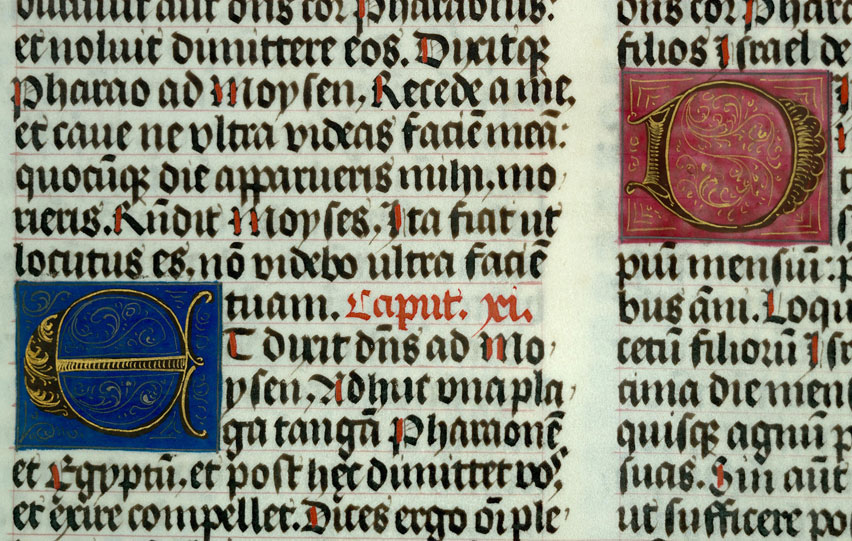 durauit aut dn̄s cor Pharaonis:
et noluit dimittere eos. Dixitqꝫ
Pharao ad Moysen, Recede a me,
et caue ne vltra videas faciē meā:
quocūqꝫ die apparueris mihi, mo,
rieris. Rn̄dit Moyses. Ita fiat ut
locutus es, nō videbo ultra faciē
tuam. Caput. xi.
ET dixit dn̄s ad Mo,
ysen. Adhuc vna pla,
ga tangā Pharaonē
et Egyptū. et post hec dimittet vos,
et exire compellet. Dices ergo oī ple,
dn̄s cor Phara
filios Israel de
D
piū mensiū: p
bus āni. Loqu
cetū filiorū Isr
cima die mens
quisqꝫ agnū p
suas. Sin aūt
ut sufficere po